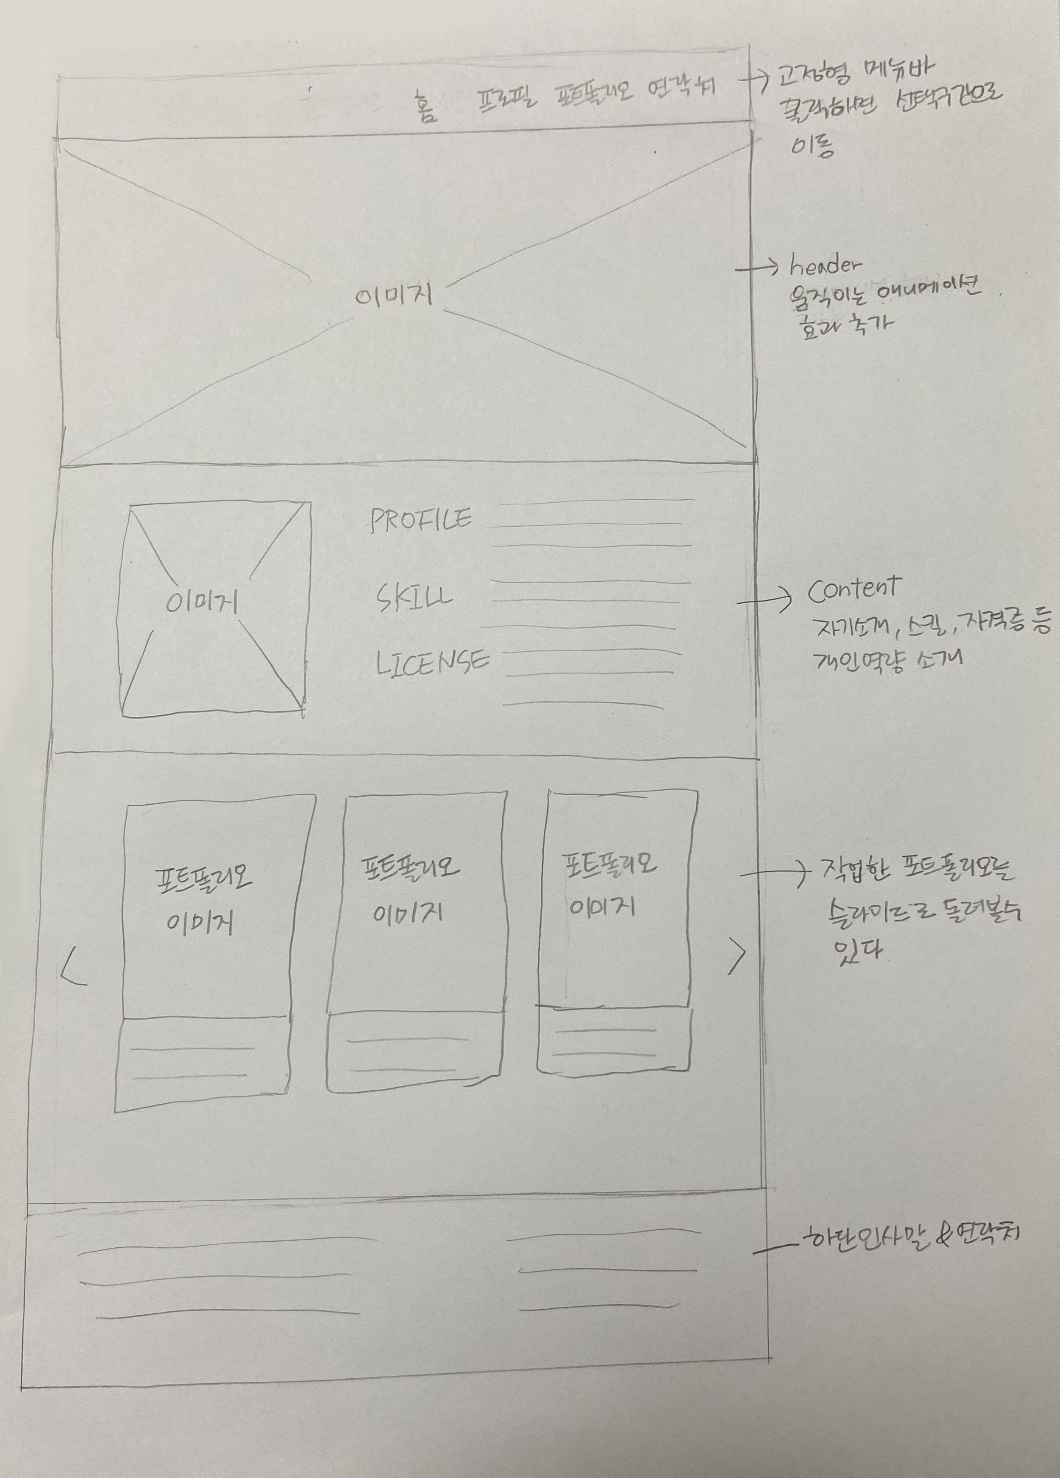 홈 프로필 포트폴리오 연락처
고정형 메뉴바
클릭하면 선택구간으로
이동
이미지
header
움직이는 애니메이션
효과 추가
이미지
PROFILE
SKILL
LICENSE
Content
자기소개, 스킬, 자격증 등
개인역량 소개
포트폴리오
이미지
포트폴리오
이미지
포트폴리오
이미지
<
>
작업한 포트폴리오를
슬라이드로 돌려볼수
있다
하단인사말 & 연락처